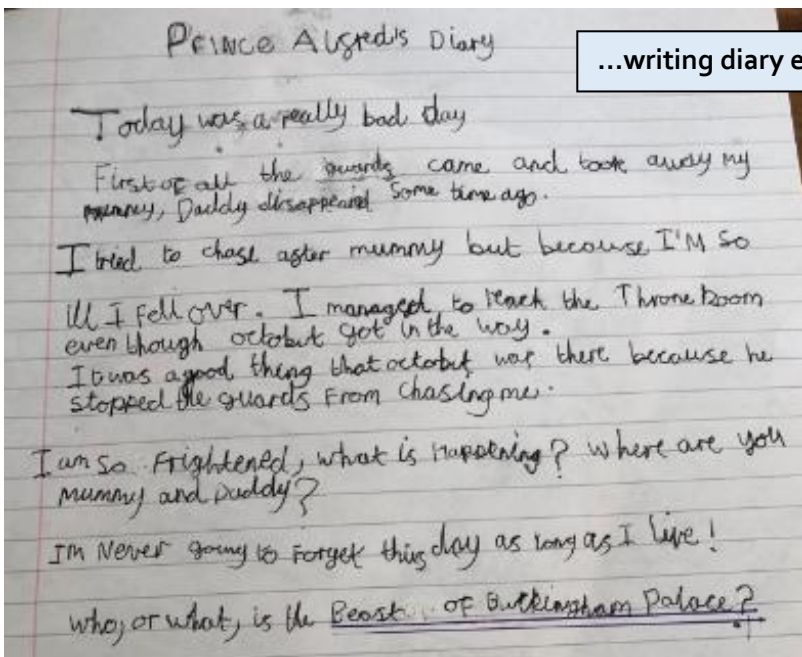 Prince Alfred's Diary
...writing diary e
Today was a really bad day
First of all the guards came and took away my
mummy, Daddy disappeared some time ago.
I tried to chase after mummy but because I'M so
ill I fell over. I managed to reach the Throne Room
even though octobut got in the way.
It was a good thing that octobut was there because he
stopped the guards from chasing me.
I am so frightened, what is Happening? Where are you
Mummy and Daddy?
Im Never going to Forget this day as long as I live!
who, or what, is the Beast of Buckingham Palace?